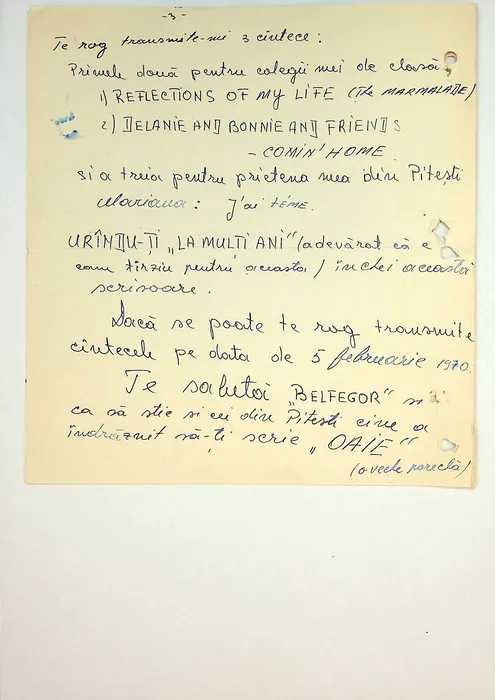 -3-
Te rog transmite-mi 3 cîntece:
Primele două pentru colegii mei de clasă
1) REFLECTIONS OF MY LIFE (The MARMALADE)
2) DELANIE AND BONNIE AND FRIENDS
- COMIN' HOME
si a treia pentru prietena mea din Pitești
Mariana: J'ai téme.
URÎNDU-ȚI „LA MULȚI ANI" (adevărat că e
cam tîrziu pentru aceasta) închei această
scrisoare.
Dacă se poate te rog transmite
cîntecele pe data de 5 februarie 1970.
Te salută "BELFEGOR" si
ca să stie si cei din Pitești cine a
îndrăznit să-ți scrie „OAIE"
(o veche poreclă)